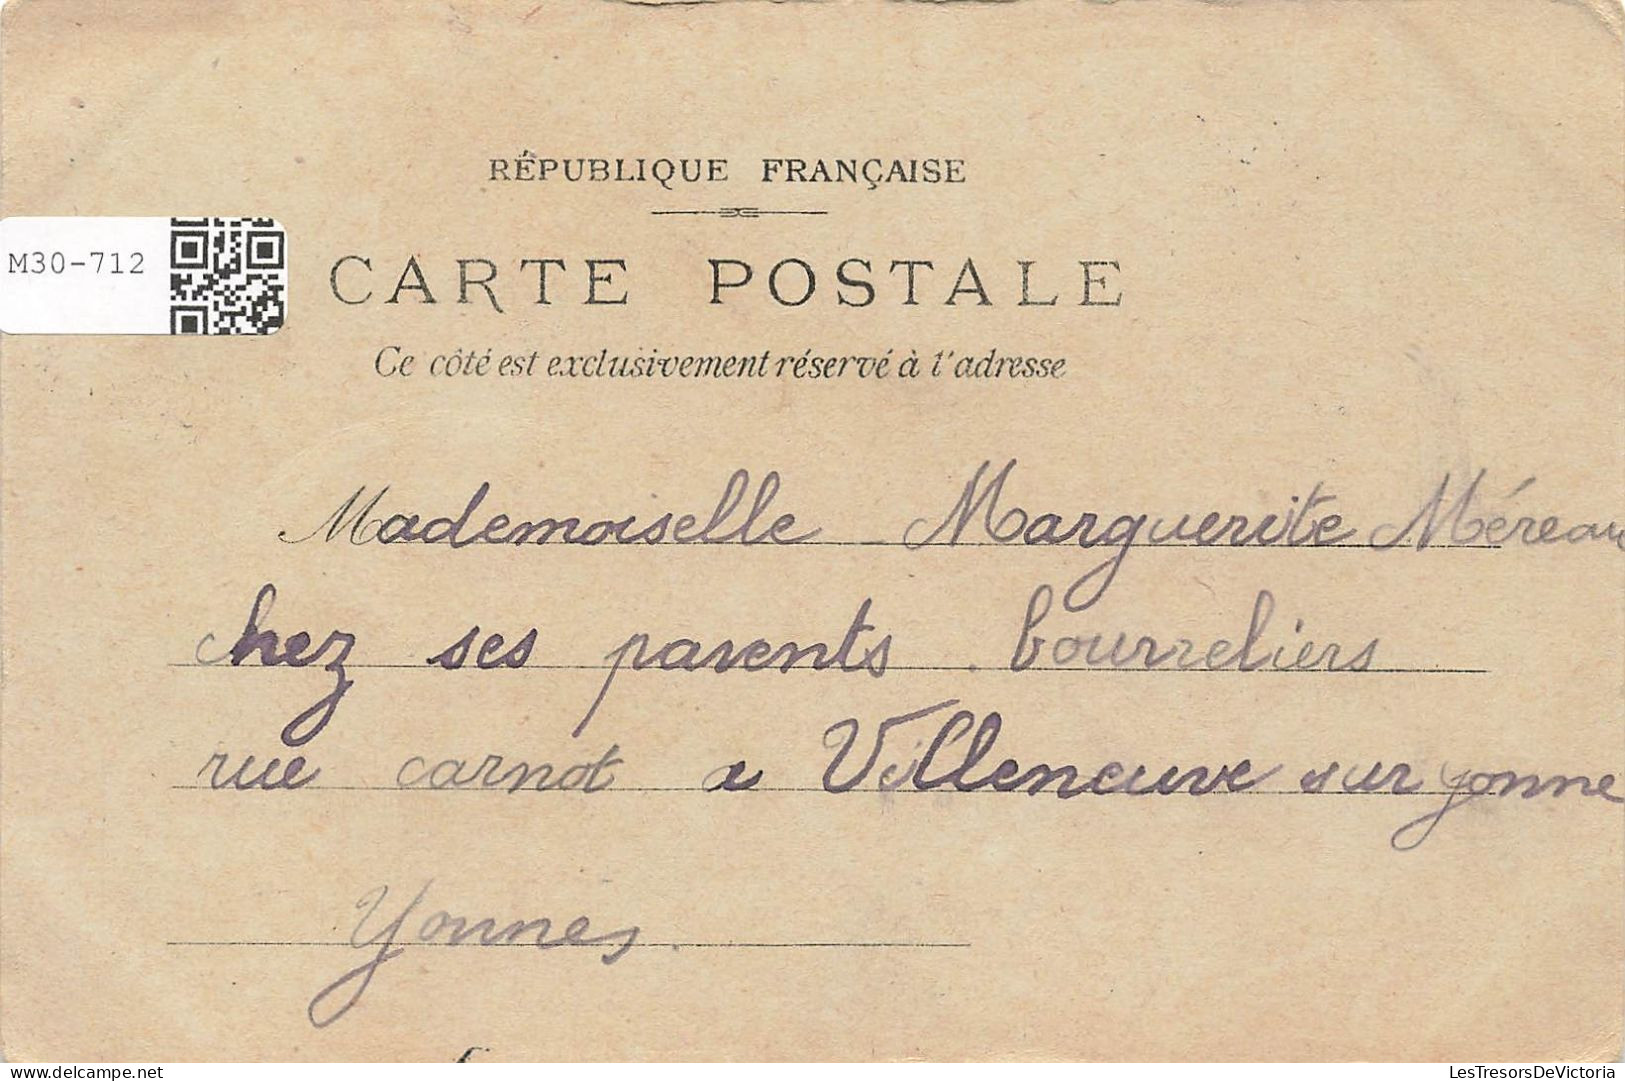 RÉPUBLIQUE FRANÇAISE
M30-712
CARTE POSTALE
Ce côté est exclusivement réservé à l'adresse
Mademoiselle Marguerite Méreau
chez ses parents bourreliers
rue carnot a Villeneuve sur yonne
Yonnes.
delcampe.net
LesTresorsDeVictoria